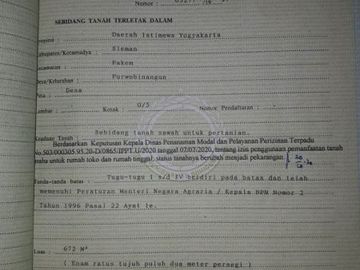 Nomor :
SEBIDANG TANAH TERLETAK DALAM
Propinsi : Daerah Istimewa Yogyakarta
Kabupaten/Kotamadya : Sleman
Kecamatan : Pakem
Desa/Kelurahan : Purwobinangun
Peta : Desa
Lembar : Kotak : 0/5 Nomor Pendaftaran :
Keadaan Tanah : Sebidang tanah sawah untuk pertanian.
Berdasarkan Keputusan Kepala Dinas Penanaman Modal dan Pelayanan Perizinan Terpadu
tanggal 07/07/2020, tentang izin penggunaan pemanfaatan tanah
untuk rumah toko dan rumah tinggal, status tanahnya berubah menjadi pekarangan.
Tanda-tanda batas : Tugu-tugu I s/d IV berdiri pada batas dan telah
memenuhi Peraturan Menteri Negara Agraria / Kepala BPN Nomor 2
Tahun 1996 Pasal 22 Ayat 1e.
Luas : 672 M²
( Enam ratus tujuh puluh dua meter persegi )